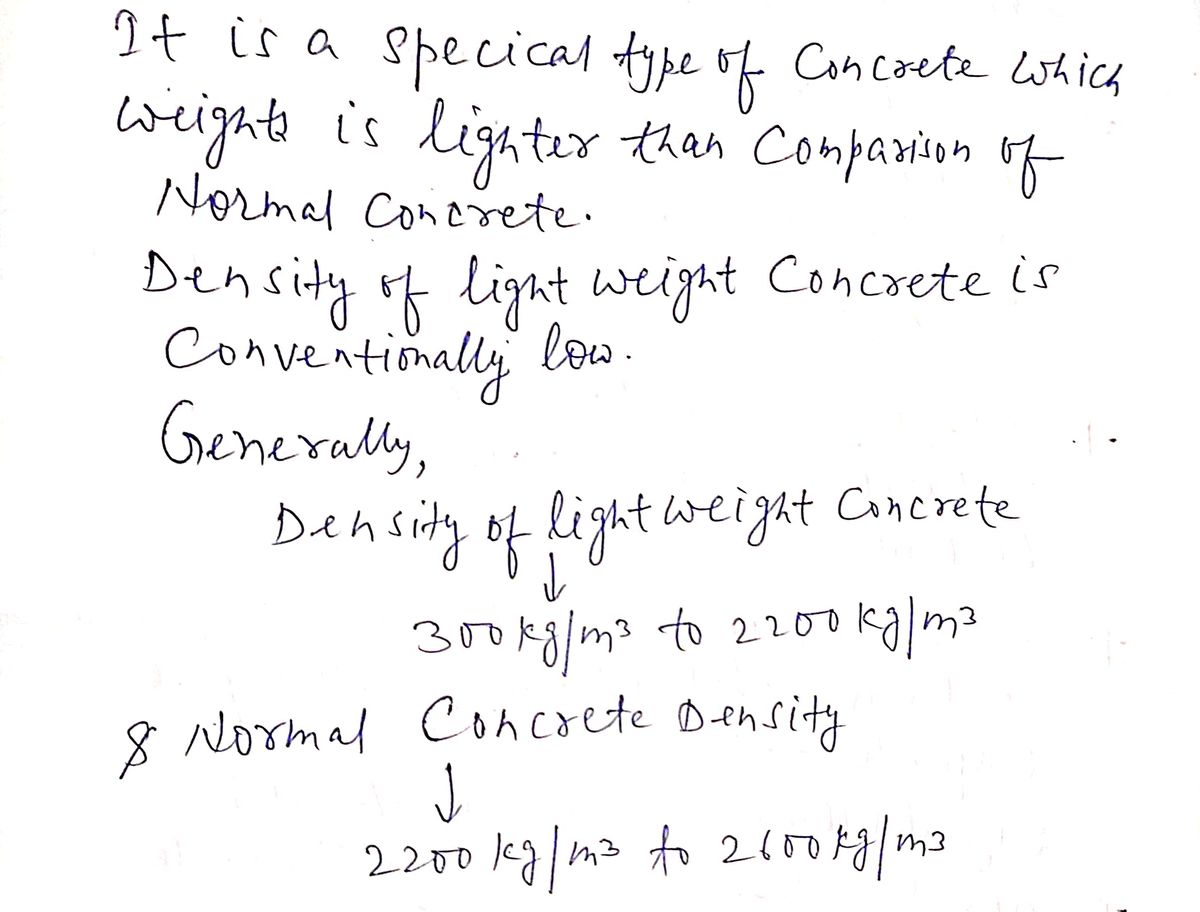 It is a specical type of Concrete which
weights is lighter than Comparison of
Normal Concrete.
Density of light weight Concrete is
Conventionally low.
Generally,
Density of light weight Concrete
↓
300 kg/m³ to 2200 kg/m³
& Normal Concrete Density
↓
2200 kg/m³ to 2600 kg/m³